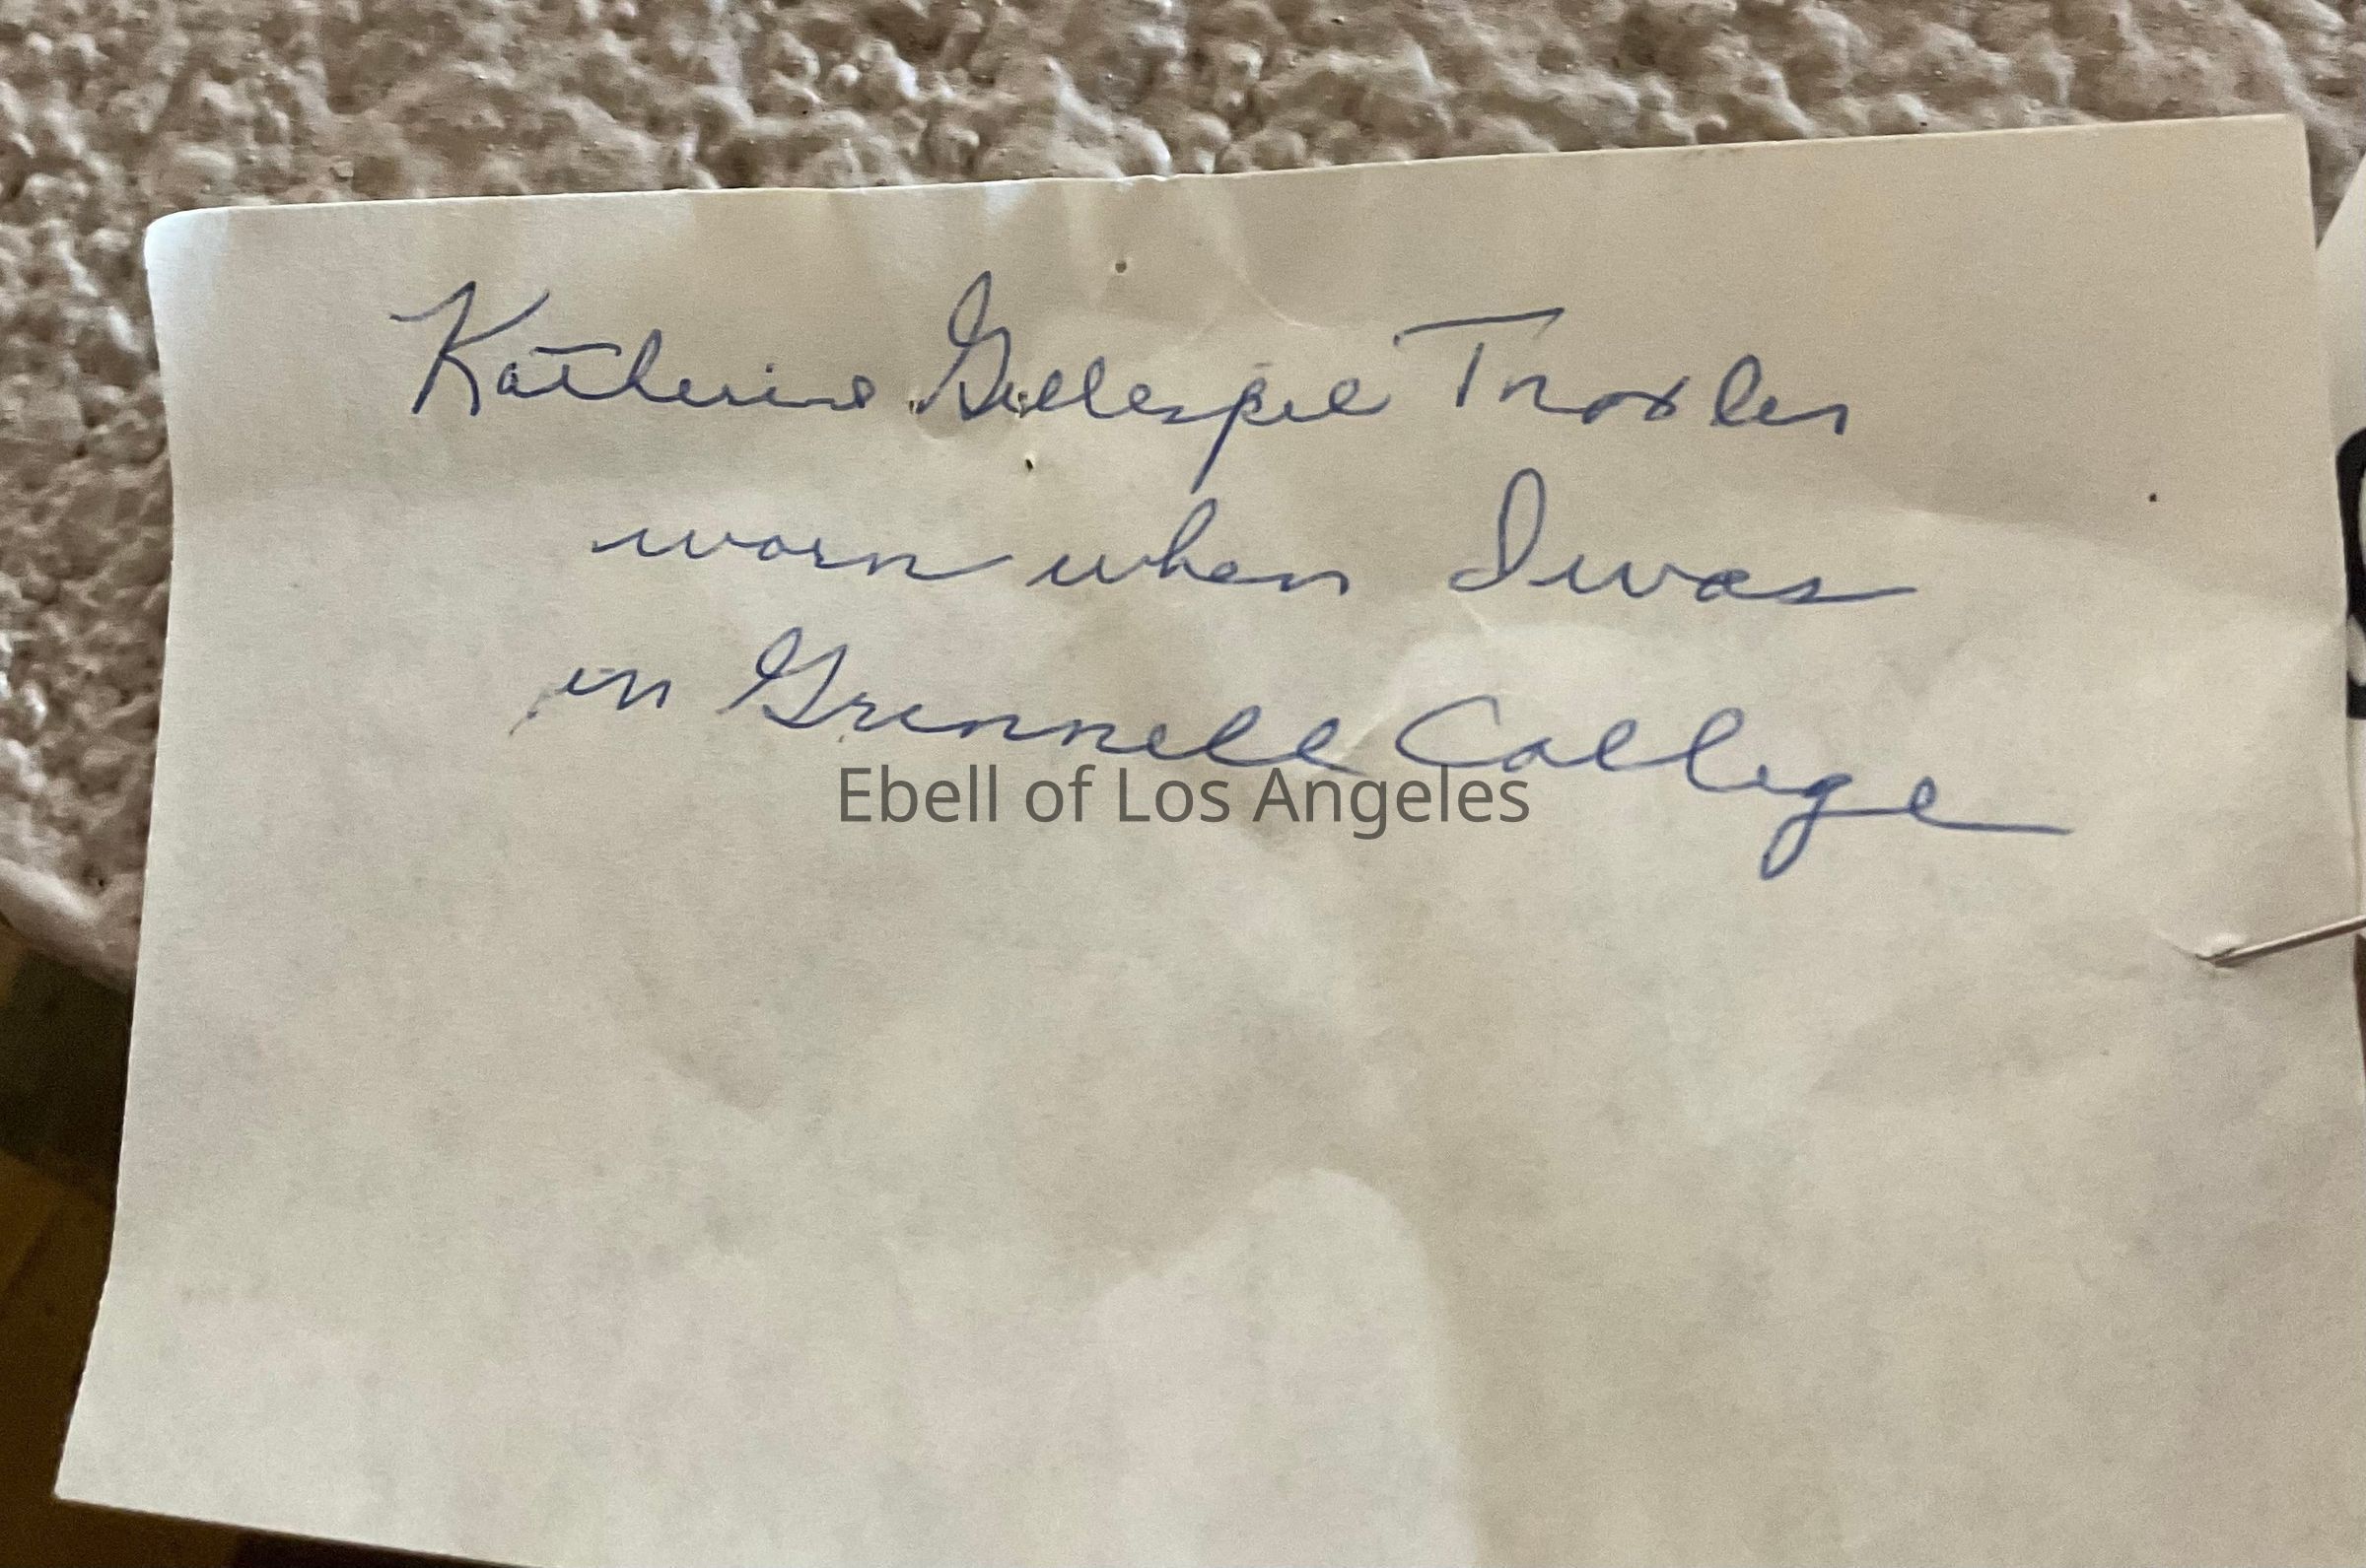 Katherine Gillespie Troxler
worn when I was
in Grinnell College
Ebell of Los Angeles